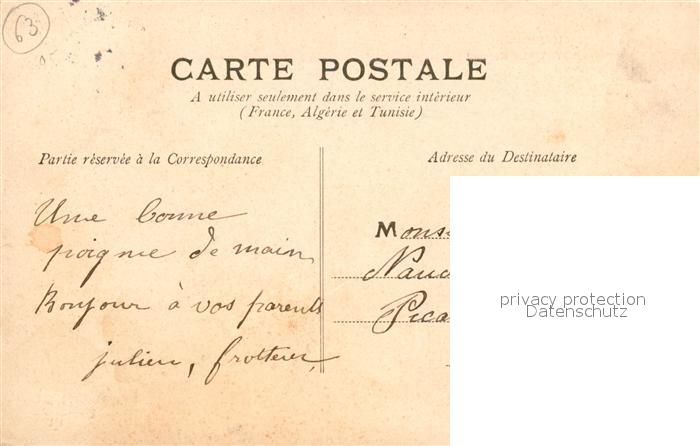 63
CARTE POSTALE
A utiliser seulement dans le service intérieur
(France, Algérie et Tunisie)
Partie réservée à la Correspondance
Adresse du Destinataire
Une bonne
poigne de main
Bonjour à vos parents
julien,
Mons
Nauc
Pica
privacy protection
Datenschutz